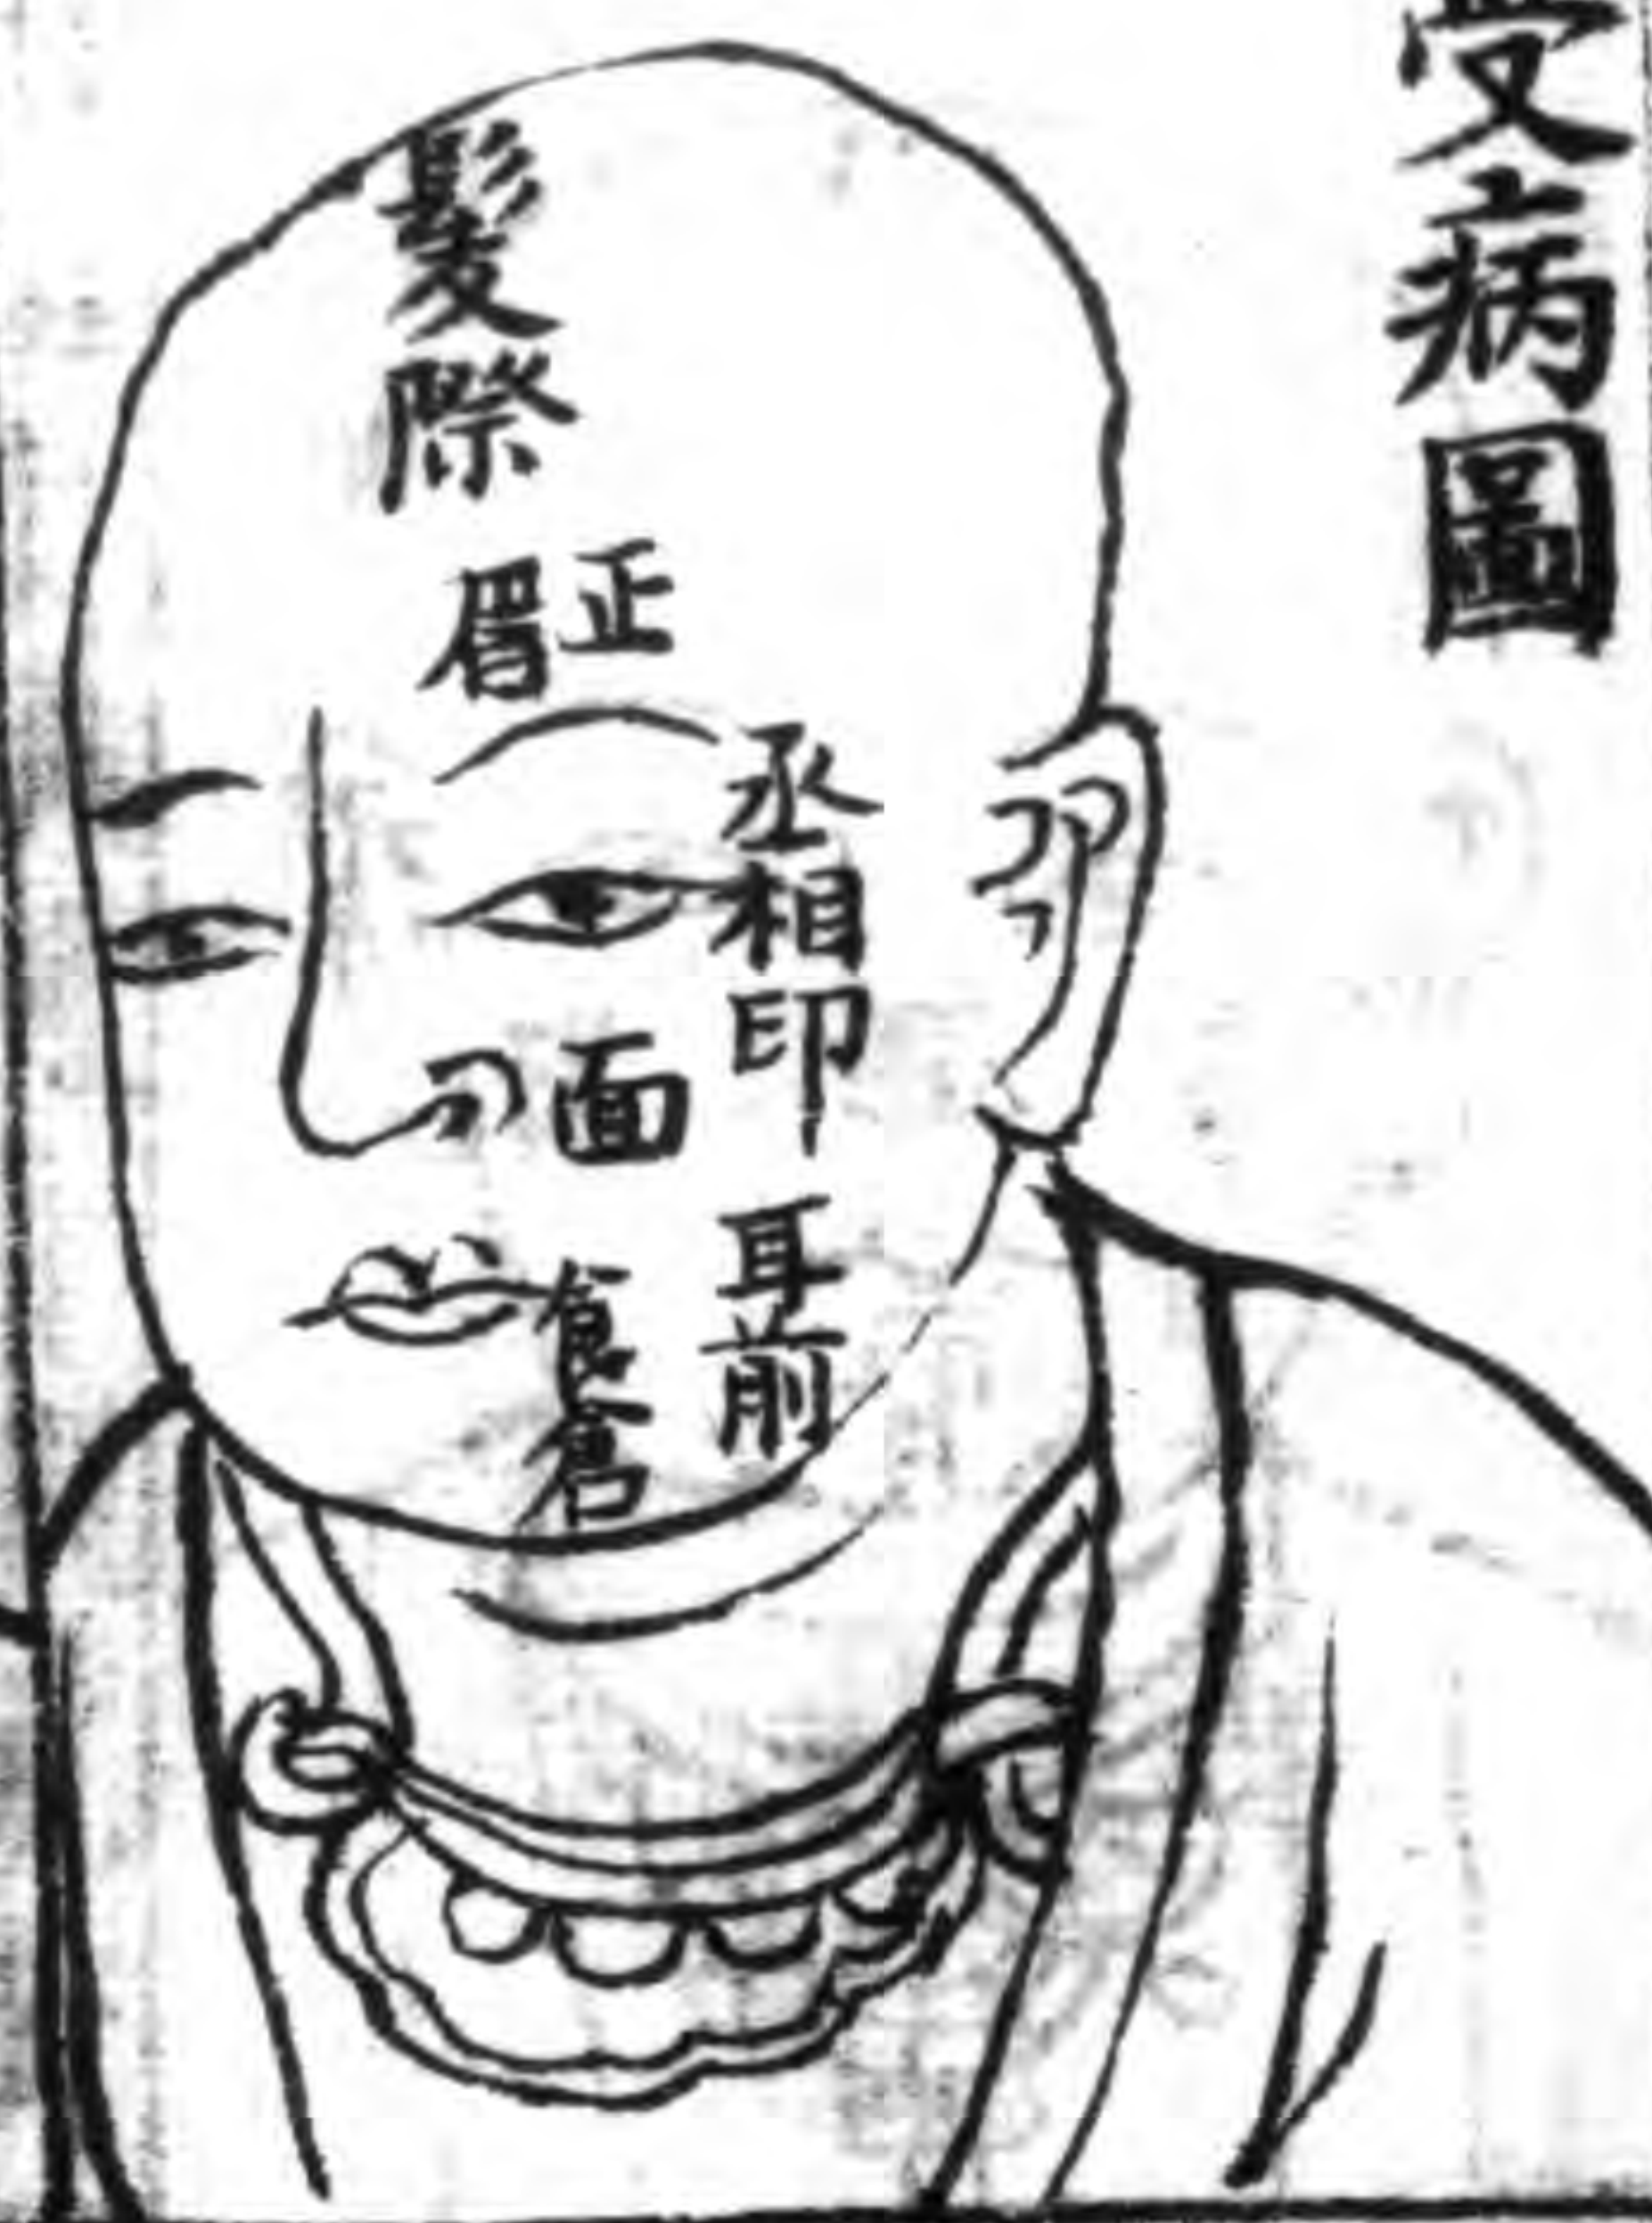 受病圖
髮際
正眉
丞相印
面
耳前
食倉